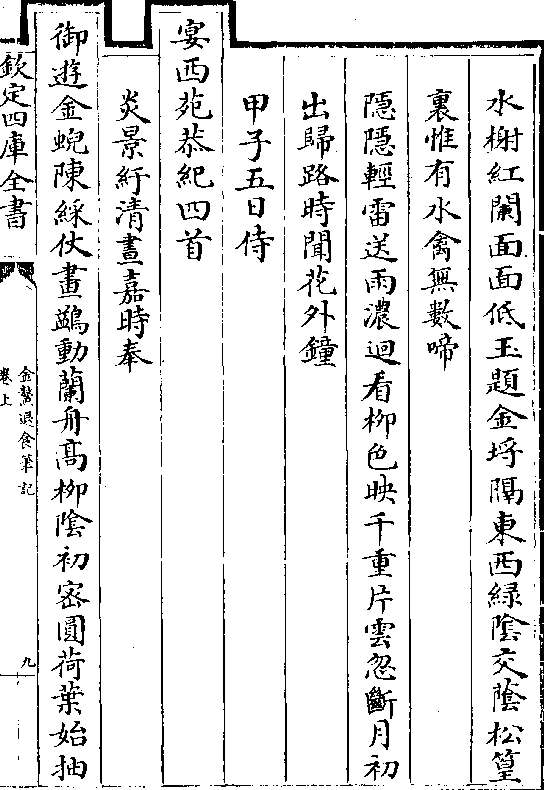 水榭紅闌面面低玉題金埒隔東西緑隂交蔭松篁
裏惟有水禽無數啼
隱隱輕雷送雨濃迴看柳色映千重片雲忽斷月初
出歸路時聞花外鐘
甲子五日侍
宴西苑恭紀四首
炎景紆清晝嘉時奉
御遊金蜺陳綵仗畫鷁動蘭舟髙柳隂初宻圓荷葉始抽
欽定四庫全書
金鰲退食筆記
卷上
九